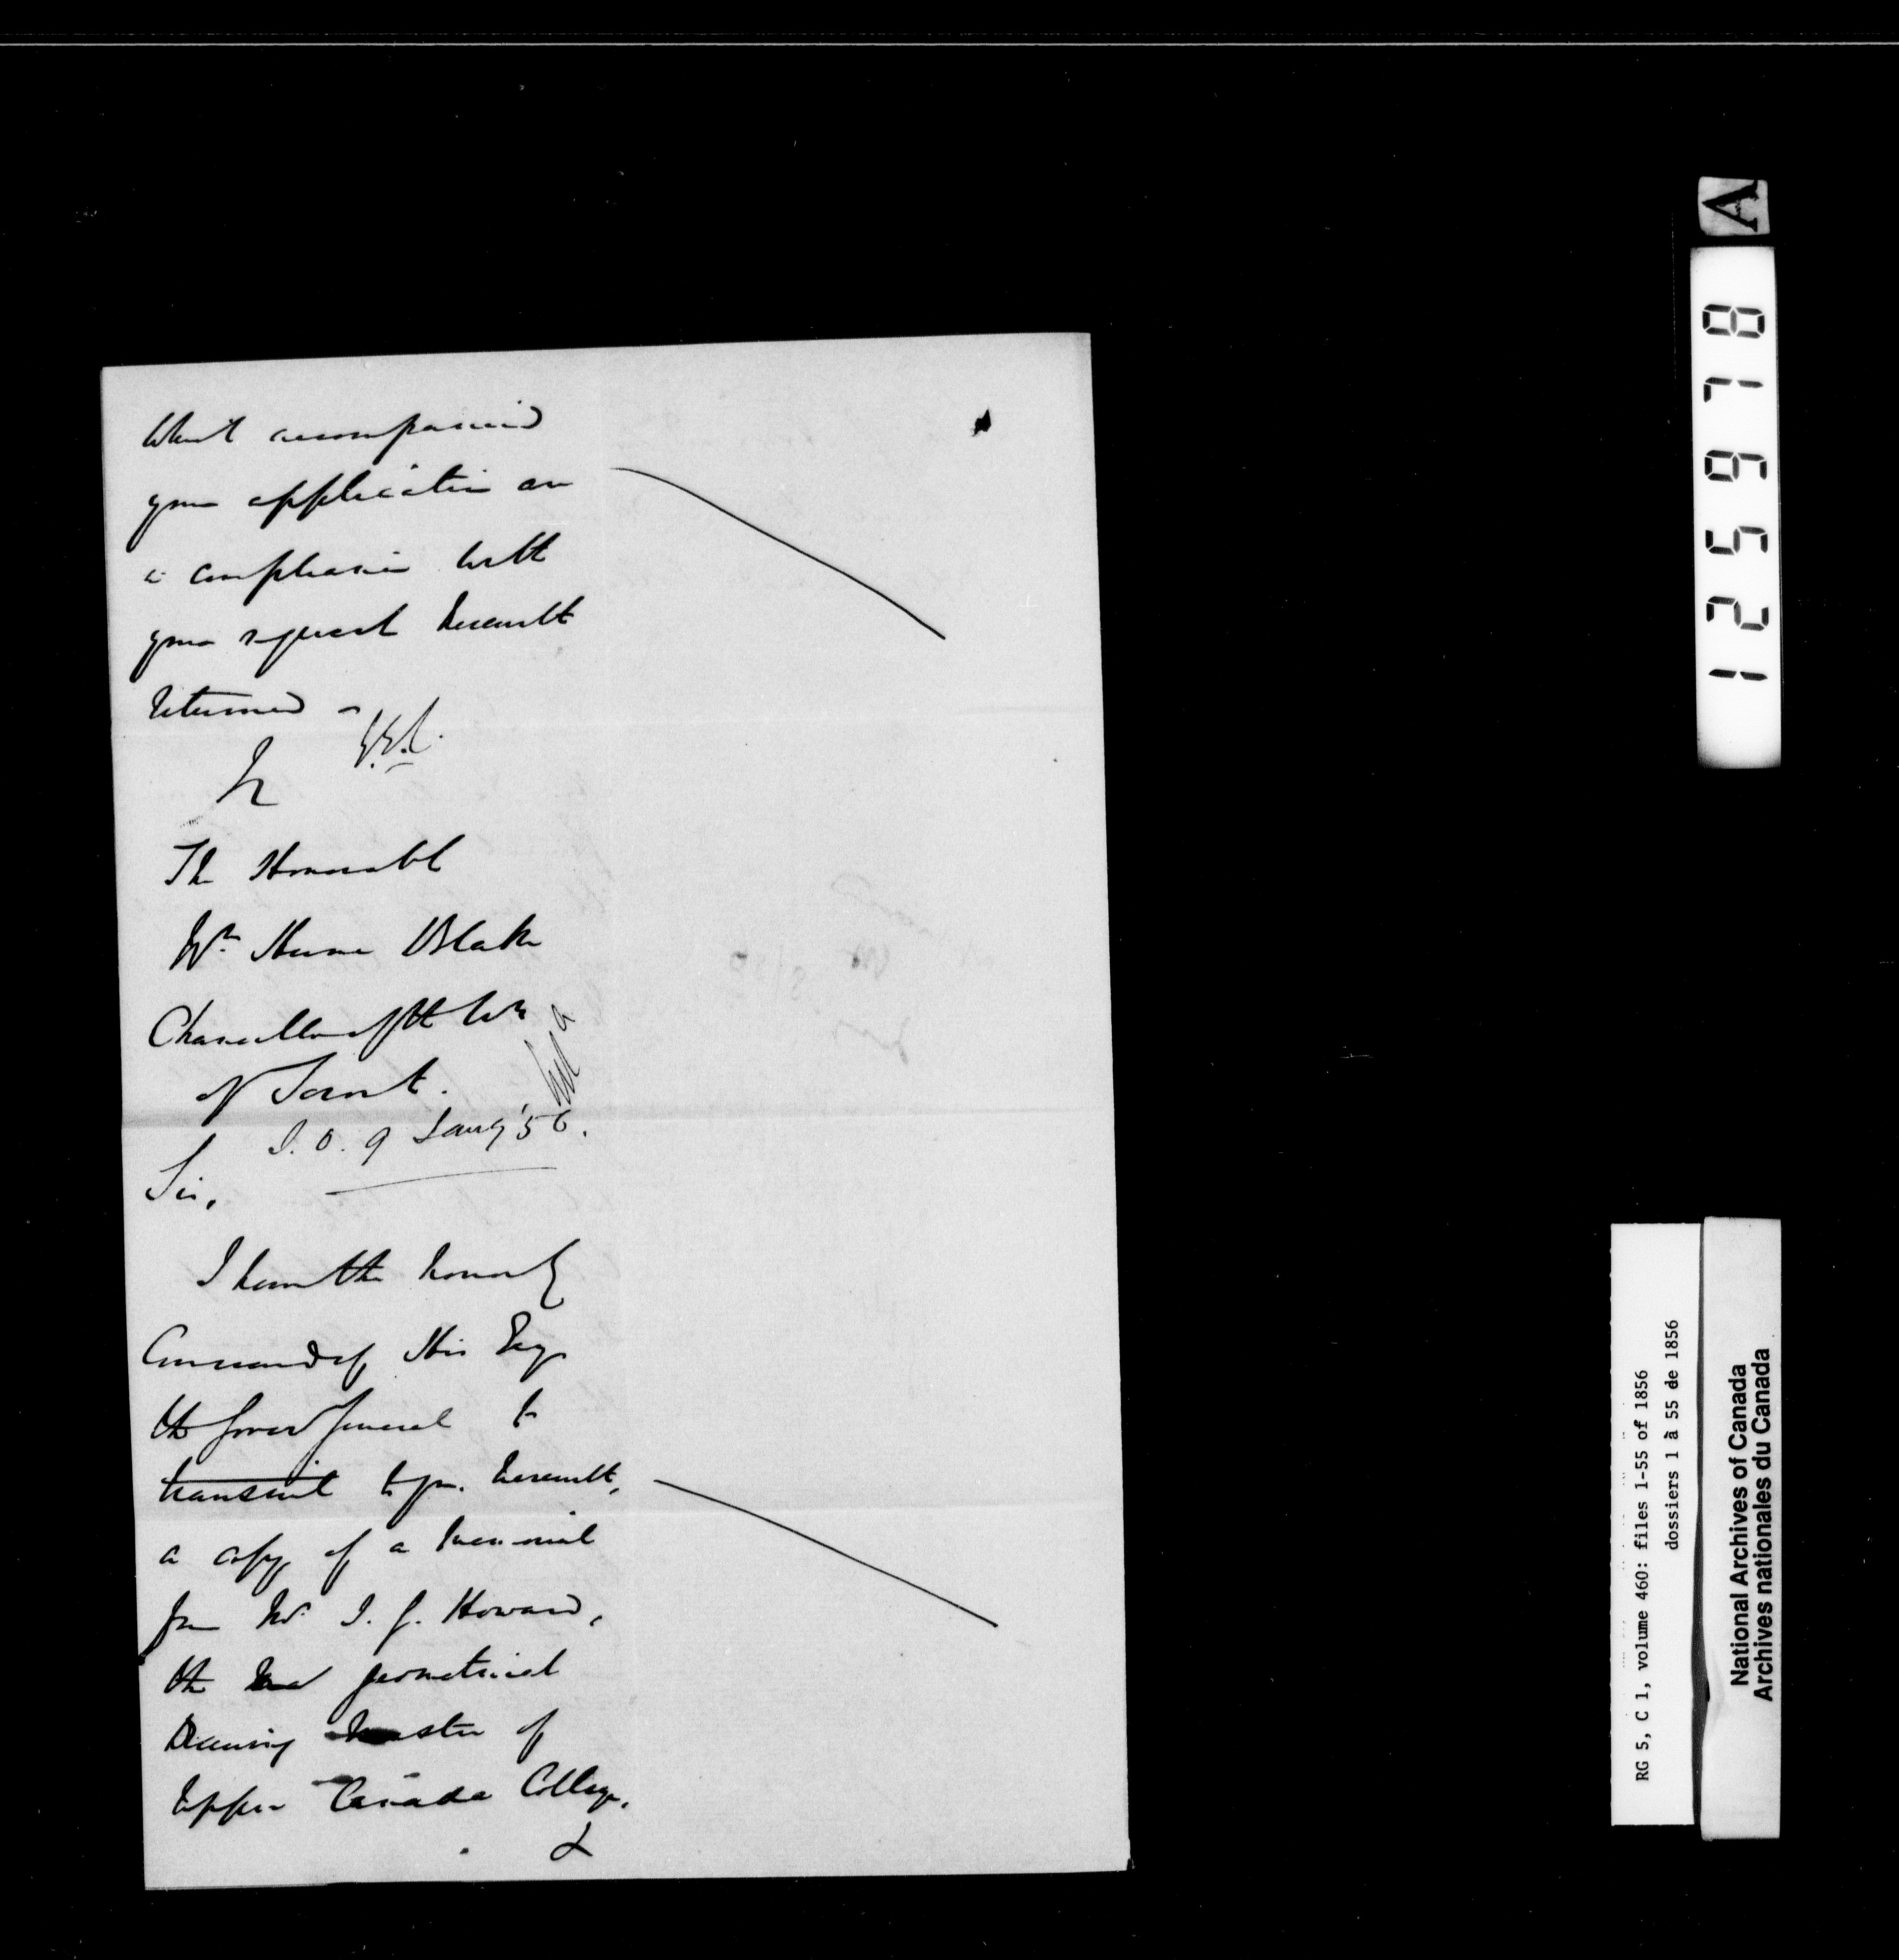 which accompanied
your application are
in compliance with
your request herewith
returned -
The Honorable
Wm Hume Blake
Chancellor of the Uny
of Toronto.
S. O. 9 Jany '56.
Sir,
I have the honor by
Command of His Exy
the Govr General to
transmit to you herewith,
a copy of a memorial
from Mr J. G. Howard,
the geometrical
Drawing Master of
Upper Canada College,
&
A
125978
RG 5, C 1, volume 460: files 1-55 of 1856
dossiers 1 à 55 de 1856
National Archives of Canada
Archives nationales du Canada